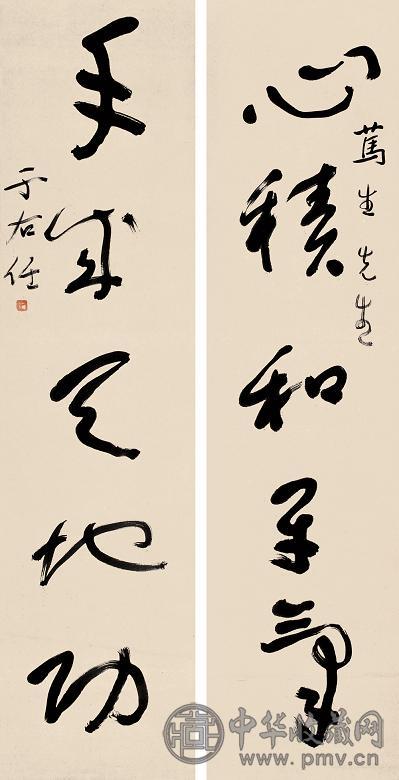 心積和平氣
篤生先生
手成天地功
于右任
中华收藏网
www.pmv.cn